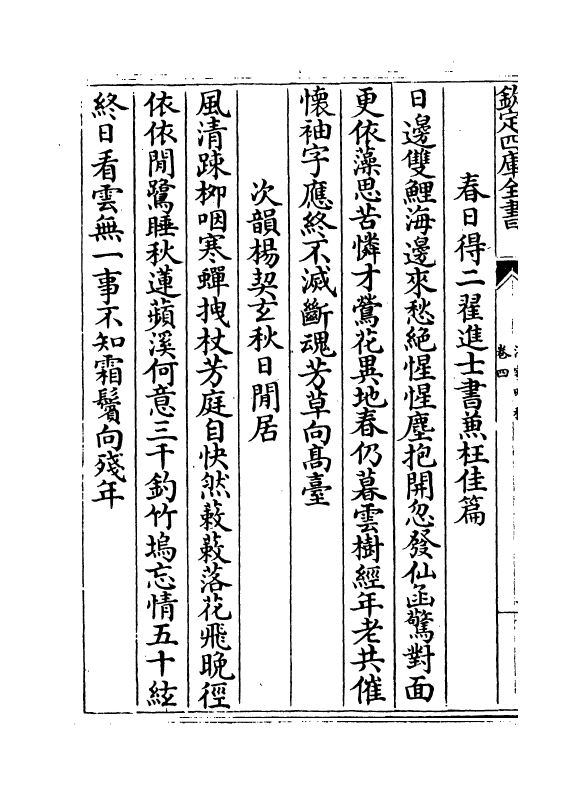 欽定四庫全書
卷四
春日得二翟進士書兼枉佳篇
日邊雙鯉海邊來愁絕惺惺塵抱開忽發仙函驚對面
更依藻思苦憐才鶯花異地春仍暮雲樹經年老共催
懷袖字應終不滅斷魂芳草向髙臺
次韻楊契玄秋日閒居
風清踈栁咽寒蟬拽杖芳庭自快然蔌蔌落花飛晩徑
依依閒鷺睡秋蓮蘋溪何意三千釣竹塢忘情五十絃
終日看雲無一事不知霜鬢向殘年